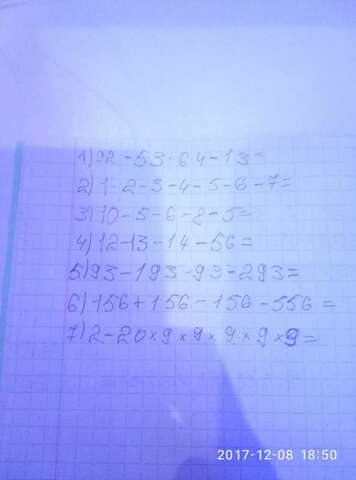 1) 92-53-64-13=
2) 1-2-3-4-5-6-7=
3) 10-5-6-8-5=
4) 12-13-14-56=
5) 93-193-93-293=
6) 156+156-156-556=
7) 2-20×9×9×9×9×9=
2017-12-08 18:50